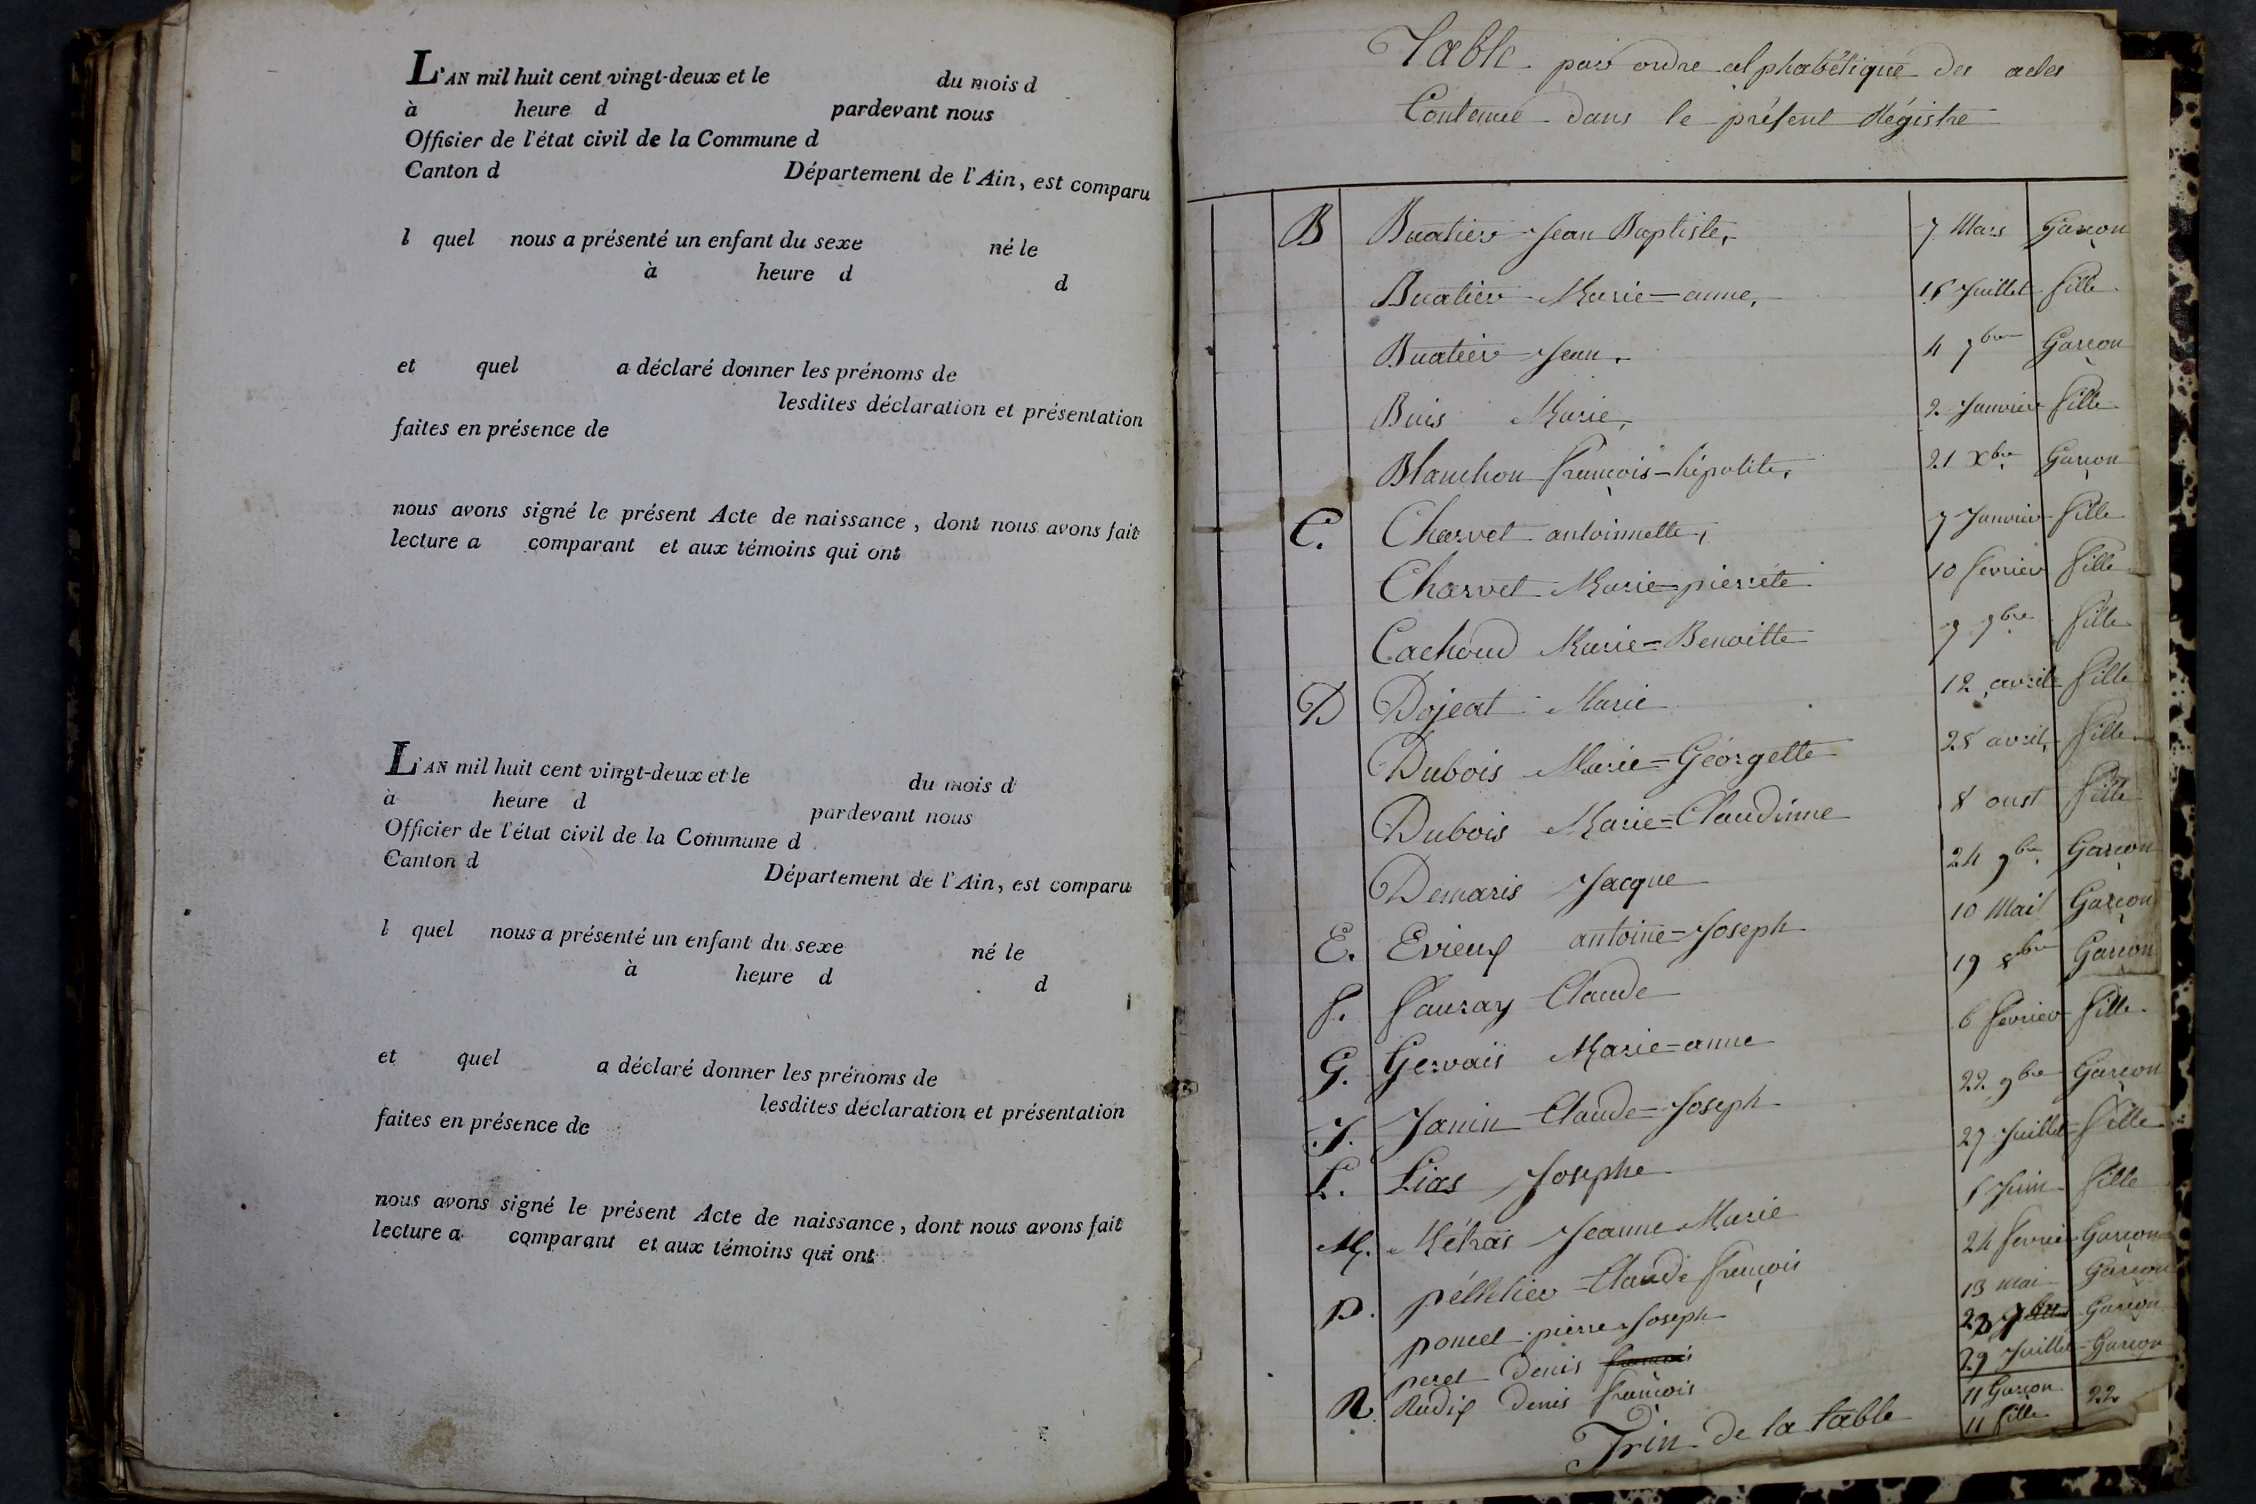 L'AN mil huit cent vingt-deux et le du mois d
à heure d pardevant nous
Officier de l'état civil de la Commune d
Canton d Département de l'Ain, est comparu
l quel nous a présenté un enfant du sexe né le
à heure d d
et quel a déclaré donner les prénoms de
lesdites déclaration et présentation
faites en présence de
nous avons signé le présent Acte de naissance, dont nous avons fait
lecture a comparant et aux témoins qui ont
L'AN mil huit cent vingt-deux et le du mois d
à heure d pardevant nous
Officier de l'état civil de la Commune d
Canton d Département de l'Ain, est comparu
l quel nous a présenté un enfant du sexe né le
à heure d d
et quel a déclaré donner les prénoms de
lesdites déclaration et présentation
faites en présence de
nous avons signé le présent Acte de naissance, dont nous avons fait
lecture a comparant et aux témoins qui ont
Table par ordre alphabétique des actes
Contenue dans le présent Régistre
B Buatier Jean Baptiste, 7 Mars Garçon
Buatier Marie=anne, Juillet fille
Buatier Jean, 4 9bre Garçon
Buis Marie, 2 Janvier fille
Blanchon françois=hipolite, 21 Xbre Garçon
C. Charvet antoinnette, 7 Janvier fille
Charvet Marie=pierrete 10 fevrier fille
Cachoud Marie=Benoitte 7 9bre fille
D Dojeat Marie 12 avril fille
Dubois Marie=Géorgette 28 avril, fille
Dubois Marie=Claudinne 8 oust fille
Demaris Jacque 24 9bre Garçon
E. Evieux antoine=Joseph 10 Mai Garçon
f. fauray Claude 19 8bre Garçon
G. Gervais Marie=anne 6 fevrier fille
J. Janin Claude=Joseph 22 9bre Garçon
L. Lias Josephe 27 Juillet fille
M. Métras Jeanne Marie Juin fille
P. pélletier Claude françois 24 fevrier Garçon
poncet pierre Joseph 13 mai Garçon
peret Denis françois Garçon
R. Rudix denis françois 29 Juillet Garçon
11 Garçon 22
11 fille
Frin de la table